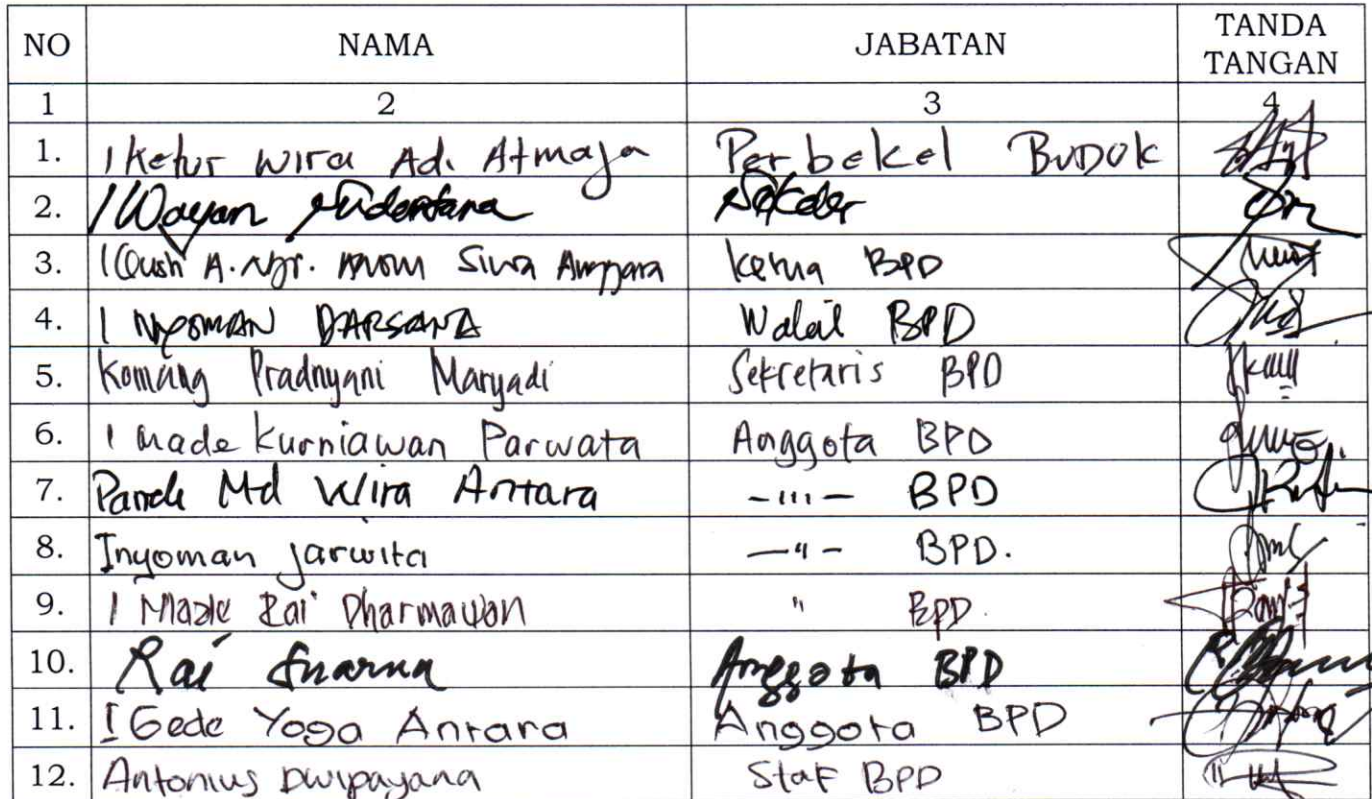 NO NAMA JABATAN TANDA TANGAN
1 2 3 4
1. I Ketut Wira Adi Atmaja Perbekel BUDUK
2. I Wayan Sekdes
3. I Gusti A. Ngr. Anom Siwa Anggara Ketua BPD
4. I NYOMAN DARSANA Wakil BPD
5. Komang Pradnyani Maryadi Sekretaris BPD
6. I Made Kurniawan Parwata Anggota BPD
7. Pande Md Wira Antara -"'- BPD
8. I nyoman Jarwita -"- BPD.
9. I Made Rai Dharmawan " BPD.
10. Rai Suarna Anggota BPD
11. I Gede Yoga Antara Anggota BPD
12. Antonius Dwipayana Staf BPD